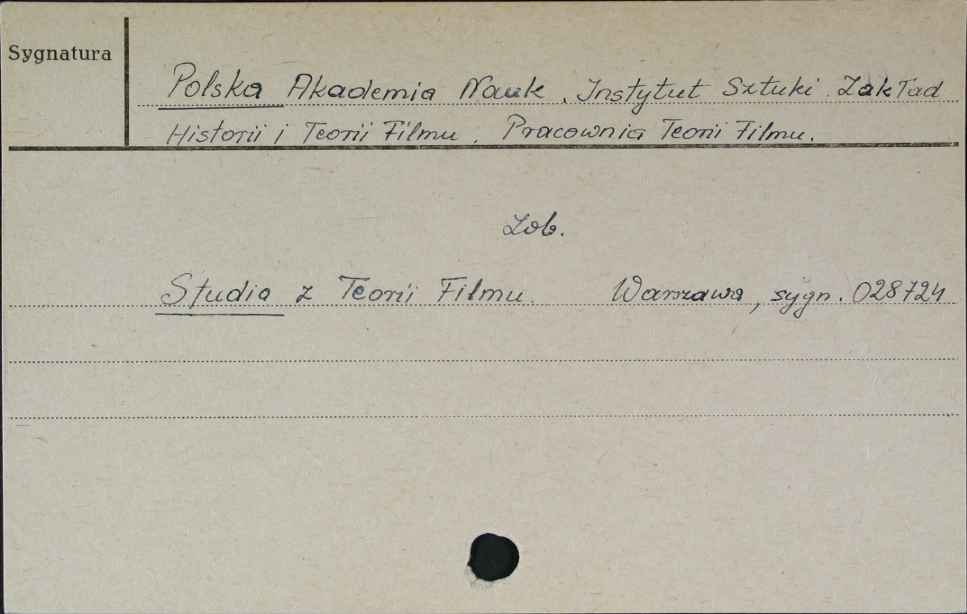 Sygnatura
Polska Akademia Nauk. Instytut Sztuki. Zakład
Historii i Teorii Filmu. Pracownia Teorii Filmu.
Zob.
Studia z Teorii Filmu. Warszawa, sygn. 028724